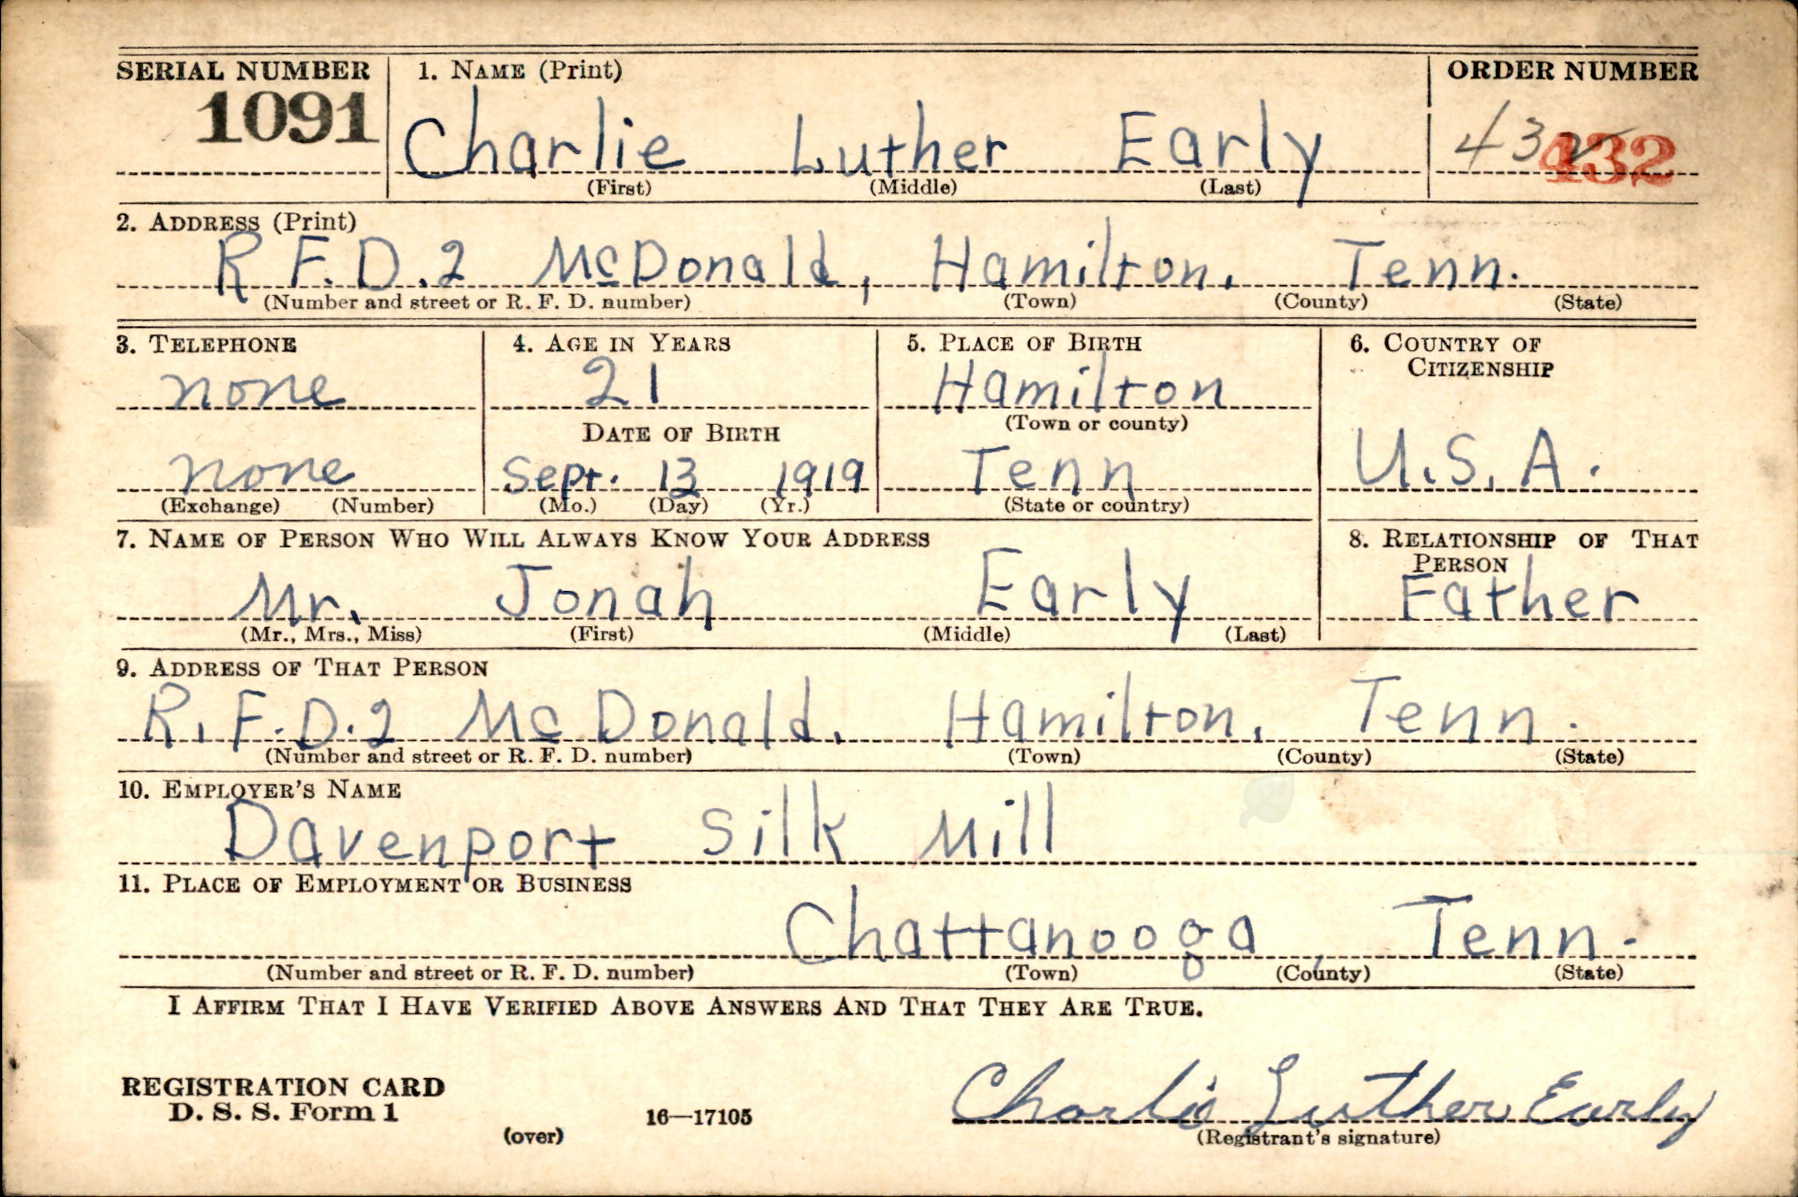 SERIAL NUMBER 1. NAME (Print) ORDER NUMBER
1091 Charlie Luther Early 432 432
(First) (Middle) (Last)
2. ADDRESS (Print)
R.F.D.2 McDonald, Hamilton, Tenn.
(Number and street or R. F. D. number) (Town) (County) (State)
3. TELEPHONE 4. AGE IN YEARS 5. PLACE OF BIRTH 6. COUNTRY OF
CITIZENSHIP
none 21 Hamilton
(Town or county)
DATE OF BIRTH
none Sept. 13 1919 Tenn U.S.A.
(Exchange) (Number) (Mo.) (Day) (Yr.) (State or country)
7. NAME OF PERSON WHO WILL ALWAYS KNOW YOUR ADDRESS 8. RELATIONSHIP OF THAT
PERSON
Mr. Jonah Early Father
(Mr., Mrs., Miss) (First) (Middle) (Last)
9. ADDRESS OF THAT PERSON
R.F.D.2 McDonald, Hamilton, Tenn.
(Number and street or R. F. D. number) (Town) (County) (State)
10. EMPLOYER'S NAME
Davenport Silk Mill
11. PLACE OF EMPLOYMENT OR BUSINESS
Chattanooga, Tenn.
(Number and street or R. F. D. number) (Town) (County) (State)
I AFFIRM THAT I HAVE VERIFIED ABOVE ANSWERS AND THAT THEY ARE TRUE.
REGISTRATION CARD
D. S. S. Form 1 16—17105 Charlie Luther Early
(over) (Registrant's signature)